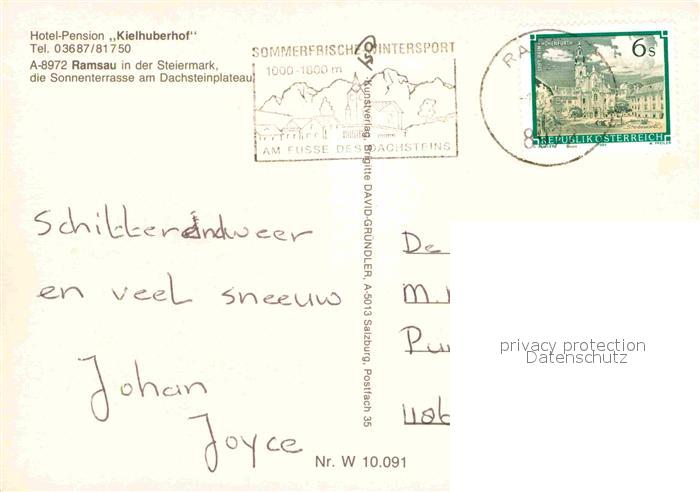 Hotel-Pension „Kielhuberhof"
Tel. 03687/81750
A-8972 Ramsau in der Steiermark,
die Sonnenterrasse am Dachsteinplateau
SOMMERFRISCHE WINTERSPORT
1000-1800 m
AM FUSSE DES DACHSTEINS
RA
8
6s
REPUBLIK ÖSTERREICH
Kunstverlag Brigitte DAVID-GRÜNDLER, A-5013 Salzburg, Postfach 35
Schitterendweer
en veel sneeuw
Johan
Joyce
De
M.
Pu
privacy protection
Datenschutz
Nr. W 10.091